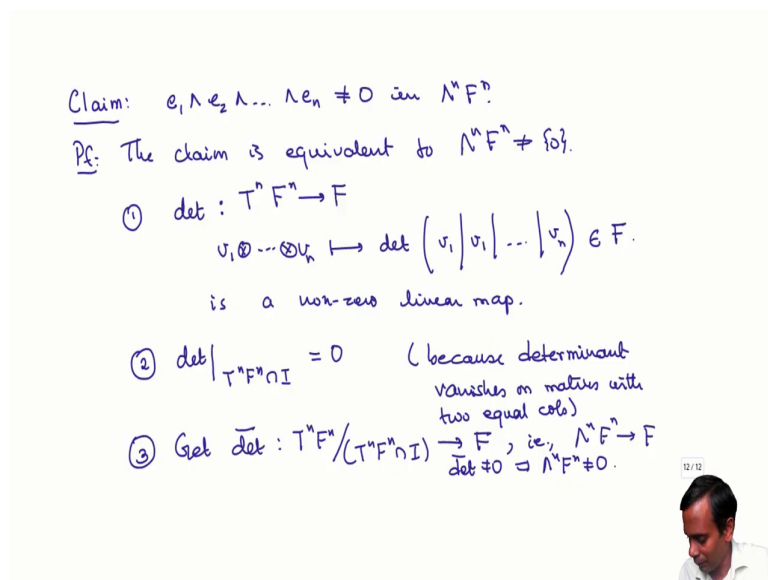 Claim: e₁∧e₂∧...∧eₙ ≠ 0 in ΛⁿFⁿ.
Pf: The claim is equivalent to ΛⁿFⁿ ≠ {0}.
① det : TⁿFⁿ → F
v₁⊗···⊗vₙ ↦ det (v₁|v₁|...|vₙ) ∈ F.
is a non-zero linear map.
② det|_TⁿFⁿ∩I = 0 (because determinant
vanishes on matrices with
two equal cols)
③ Get d̅e̅t̅ : TⁿFⁿ/(TⁿFⁿ∩I) → F, ie., ΛⁿFⁿ → F
d̅e̅t̅ ≠ 0 ⇒ ΛⁿFⁿ ≠ 0.
12 / 12